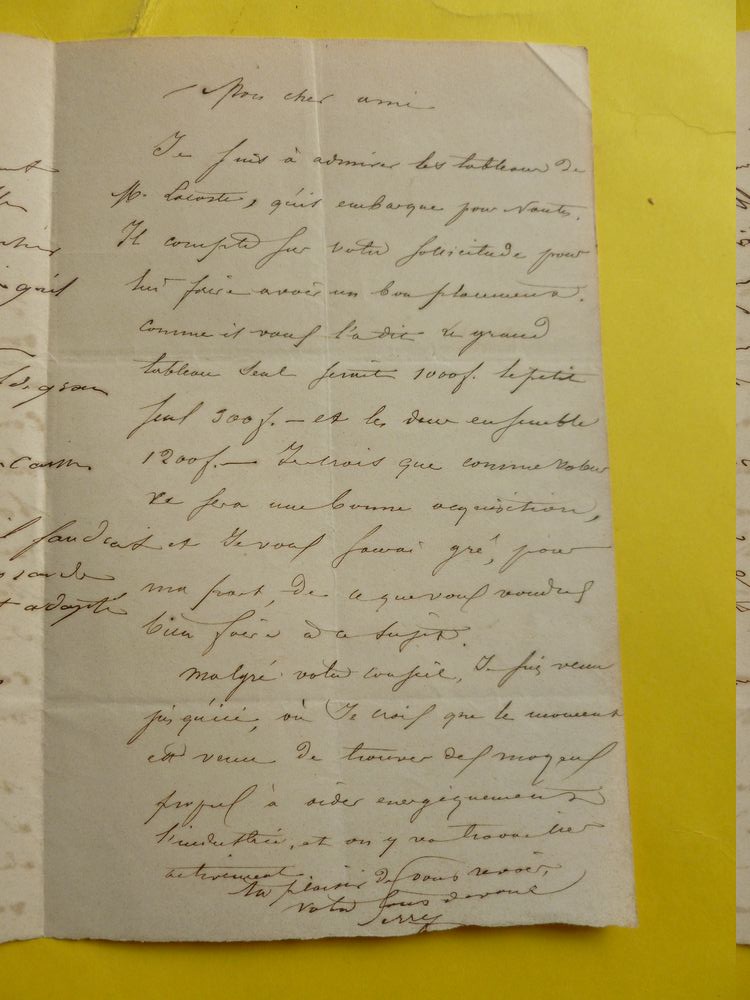 Mon cher ami
Je suis à admirer les tableaux de
M. Lacoste, qu'il embarque pour Nantes.
Il compte sur votre sollicitude pour
lui faire avoir un bon placement.
comme il vous l'a dit le grand
tableau seul serait 1000f. le petit
seul 300f. — et les deux ensemble
1200f. — Je crois que comme valeur
ce sera une bonne acquisition,
et Je vous saurai gré, pour
ma part, de ce que vous voudrez
bien faire à ce sujet.
Malgré votre conseil, Je suis venu
jusqu'ici, où Je crois que le moment
est venu de trouver des moyens
propres à aider energiquement
l'industrie, et on y va travailler
activement
au plaisir de vous revoir,
votre tous devoué
qu'il
gran
il faudrait
adapté